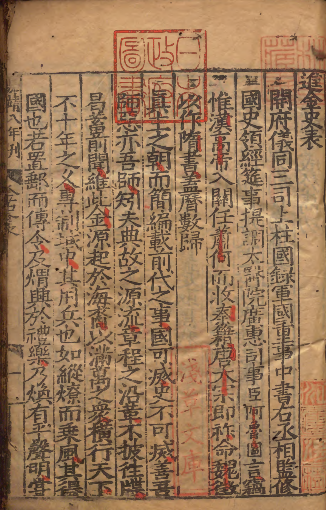 進金史表
開府儀同三司上柱國録軍國重事中書右丞相監修
國史領經筵事提調太醫院廣惠司事臣阿魯圖言竊
惟漢高帝入關任蕭何而收秦籍唐太宗即祚命魏徵
以作隋書蓋曆數歸
真主之朝而簡編載前代之事國可㓕史不可㓕善吾
師惡亦吾師矧夫典故之源流章程之沿革不披往牒
曷蓄前聞維此金源起於海裔以滿萬之衆横行天下
不十年之久專制域中其用兵也如縱燎而乘風其得
國也若置郵而傳令及煟興於禮樂乃煥有乎聲明嘗
嘉靖八年刊
日本政府圖書
淺草文庫